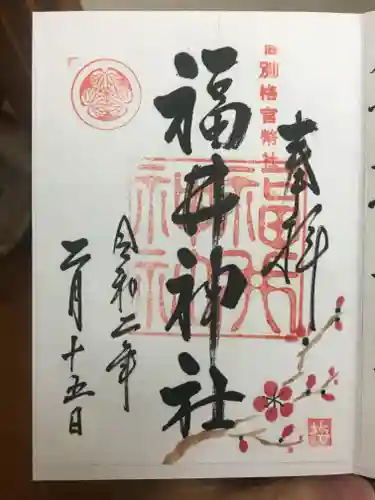 奉拝
旧別格官幣社
福井神社
令和二年
二月十五日